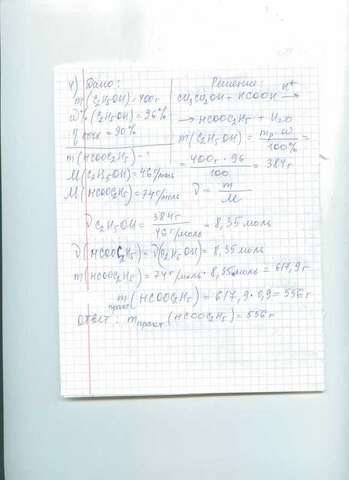 4) Дано:
m(C₂H₅OH)=400г
W%(C₂H₅OH)=96%
η =90%
m(HCOOC₂H₅)-
M(C₂H₅OH)=46г/моль
M(HCOOC₂H₅)=74г/моль
Решение:
CH₃CH₂OH+HCOOH H⁺→
→HCOOC₂H₅ + H₂O
m(C₂H₅OH)= mр·w/100% =
= 400г·96/100 = 384г
ν = m/M
ν C₂H₅OH= 384г/46г/моль = 8,35моль
ν(HCOOC₂H₅)=ν(C₂H₅OH)= 8,35моль
m(HCOOC₂H₅)=74г/моль·8,35моль=617,9г
mпракт(HCOOC₂H₅)=617,9·0,9=556г
Ответ: mпракт(HCOOC₂H₅)=556г